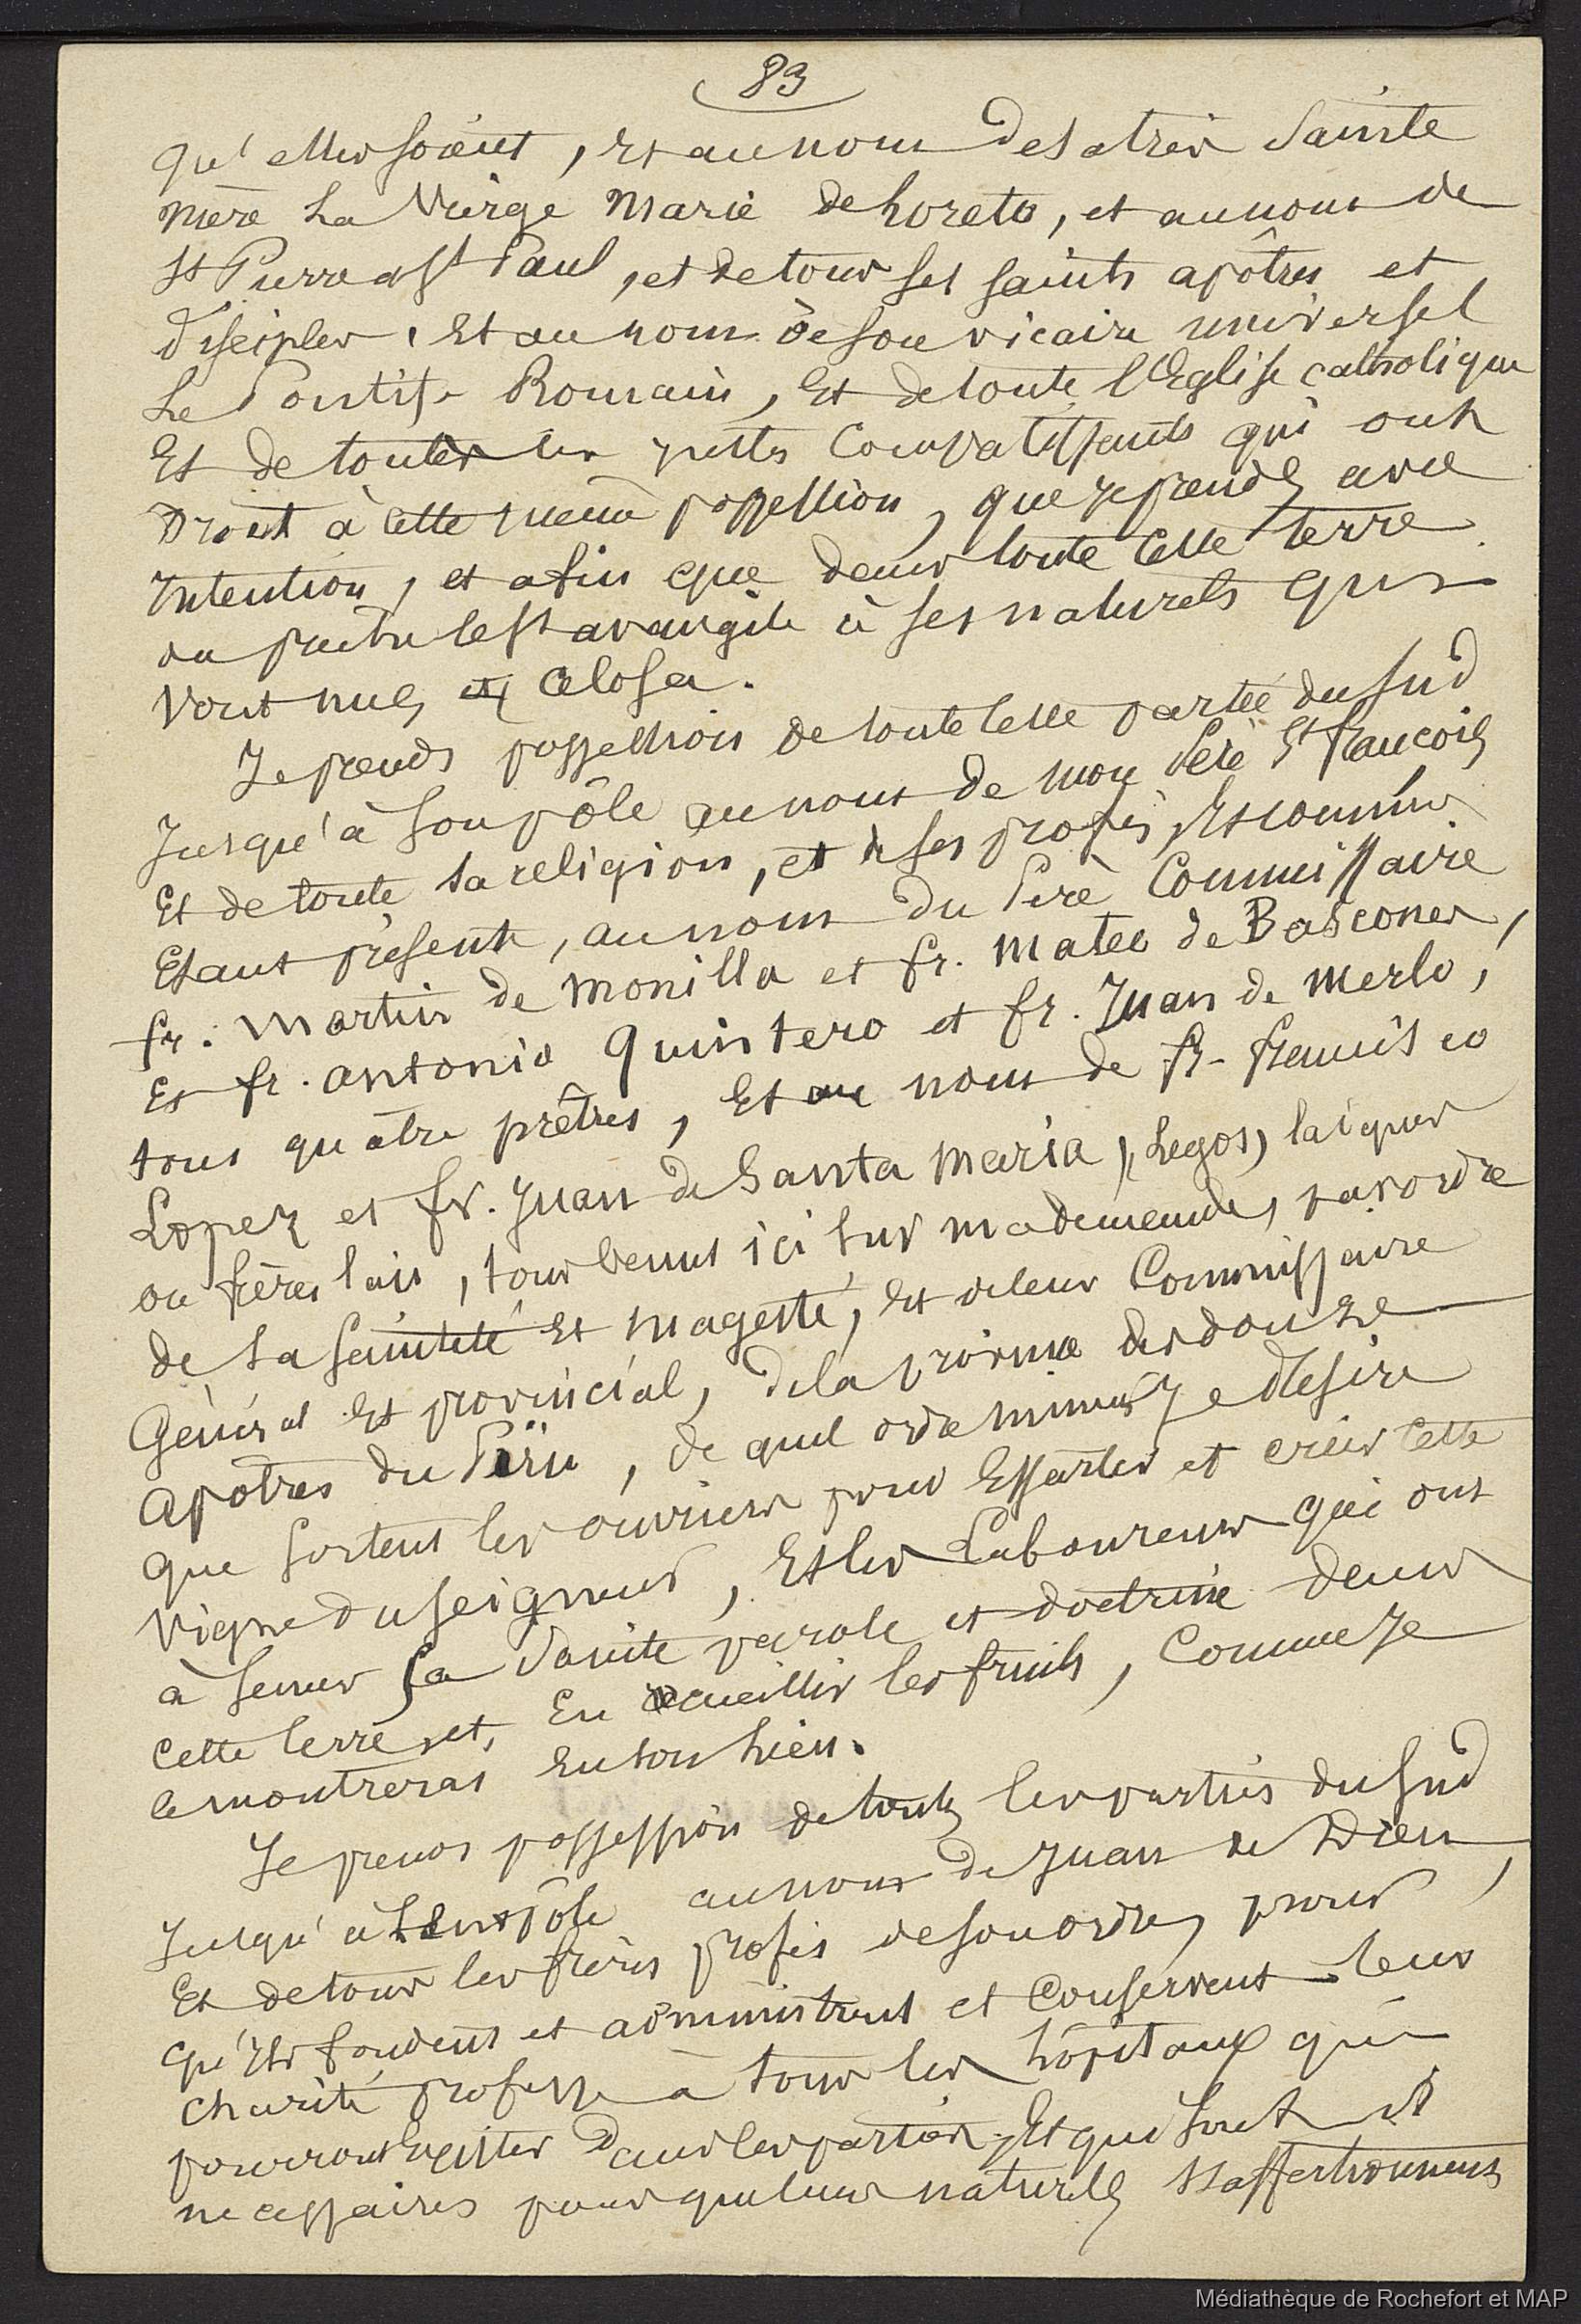 83
qu'elles soient, et au nom de sa très Sainte
mère La Vierge Marie de Loreto, et au nom de
St Pierre et St Paul, et de tous ses saints apôtres et
disciples, Et au nom de son vicaire universel
Le Pontife Romain, Et de toute l'Eglise catholique
Et de toutes les justes compatissants qui ont
Droit à cette même possession, que je prends avec
Intention, et afin que dans toute cette terre
on prêche le St avangile à ses naturels qui
vont nus, et cela sera.
Je prends possession de toute cette partée du sud
Jusqu'à son pôle au nom de mon Père St Francois
Et de toute sa religion, et de ses profès, Et comme
Etant présents, au nom du Père Commissaire
fr. Martin de Monilla et fr. Mateo de Bascones,
Et fr. Antonio Quintero et fr. Juan de Merlo,
tous quatre prêtres, Et au nom de fr. Francisco
Lopez et fr. Juan de Santa Maria, (Legos) laïques
ou frères lais, tous venus ici sur ma demande, par ordre
de Sa Sainteté Et Magesté, Et de leur Commissaire
Général Et provincial, de la province des douze
Apôtres du Péru, de quel ordre mineurs Je désire
que sortent les ouvriers pour Essarter et créer cette
vigne du seigneur, Et les Laboureurs qui ont
à semer sa Sainte parole et doctrine dans
cette terre, et, En recueillir les fruits, Comme Je
le montrerai En son lieu.
Je prends possession de toutes les parties du sud
Jusqu'à son pôle au nom de Juan de Dieu,
Et de tous les frères profès de son ordre, pour
qu'Ils fondent et administrent et conservent leur
charité professe à tous les hôpitaux qui
pourront Exister Dans les parties, Et qui sont si
necessaires pour que leurs naturels s'affectionnent
Médiathèque de Rochefort et MAP